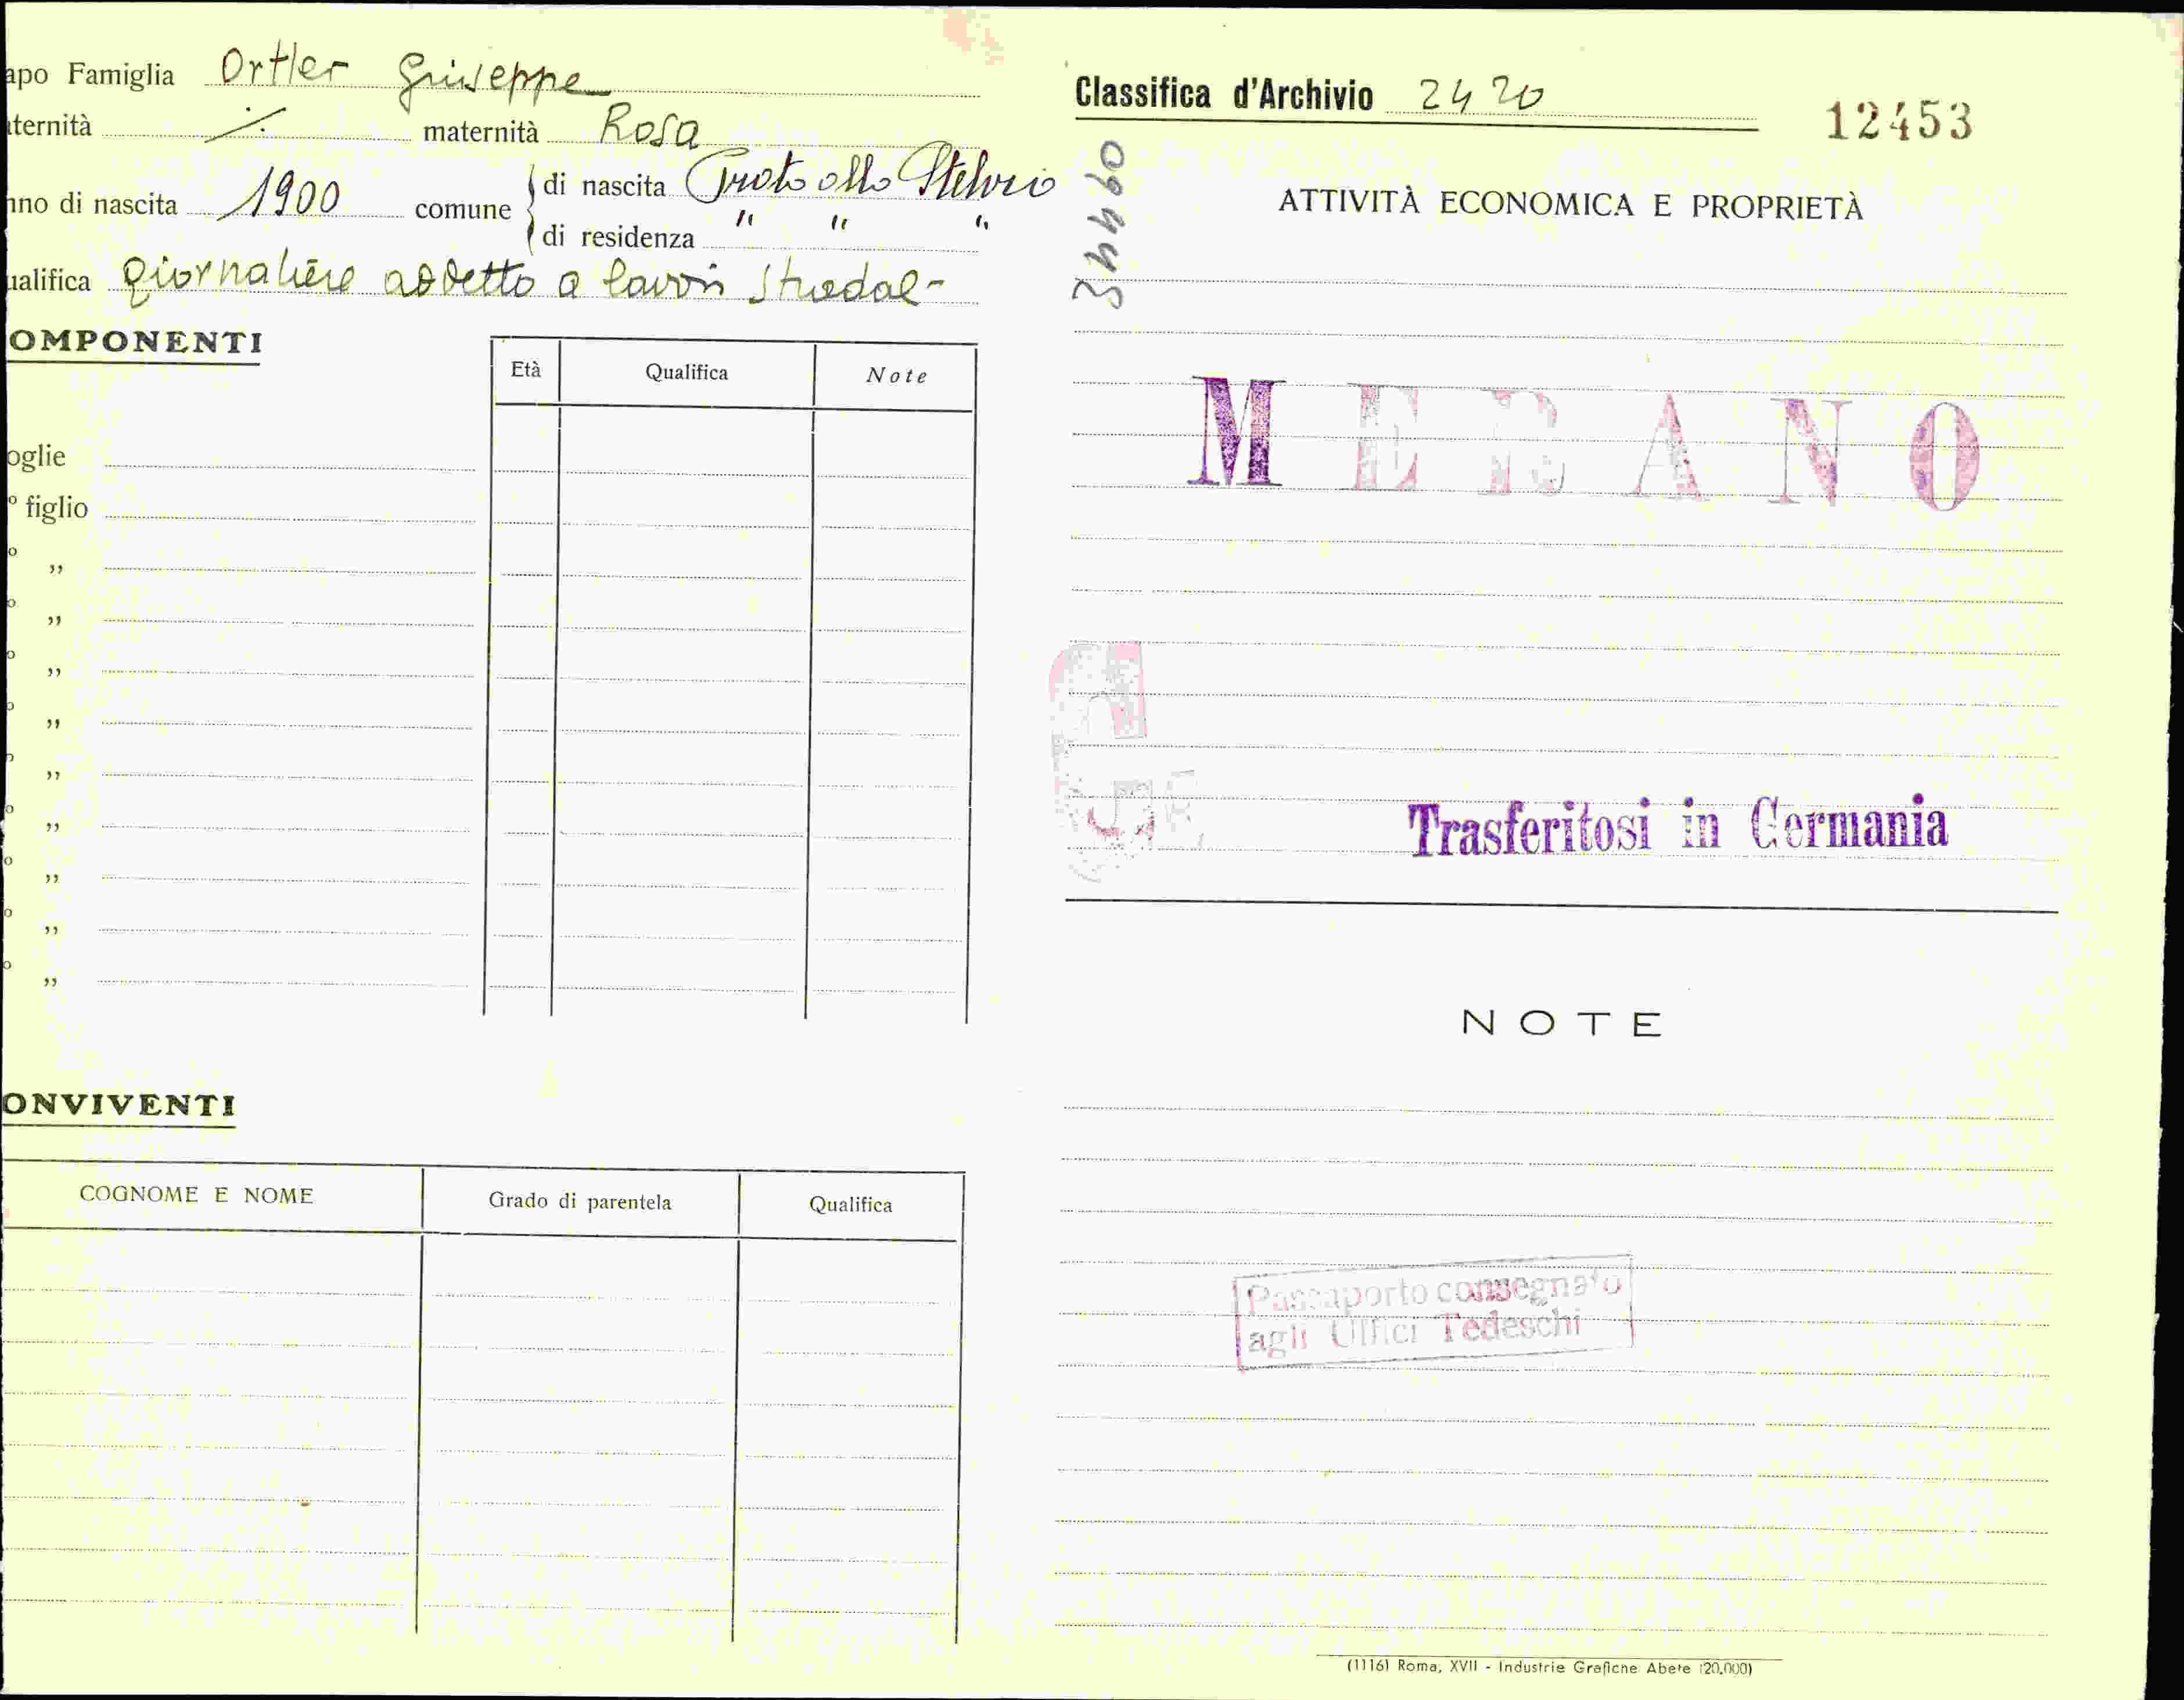 apo Famiglia Ortler Giuseppe
ternità ./. maternità Rosa
nno di nascita 1900 comune di nascita Prato allo Stelvio
di residenza " " "
ualifica giornaliere addetto a lavori stradal-
OMPONENTI
Età Qualifica Note
oglie
º figlio
º "
º "
º "
º "
º "
º "
º "
º "
º "
ONVIVENTI
COGNOME E NOME Grado di parentela Qualifica
Classifica d'Archivio 2420
12453
09445
ATTIVITÀ ECONOMICA E PROPRIETÀ
MERANO
Trasferitosi in Germania
NOTE
Passaporto consegnato
agli Uffici Tedeschi
(1116) Roma, XVII - Industrie Grafiche Abete (20.000)